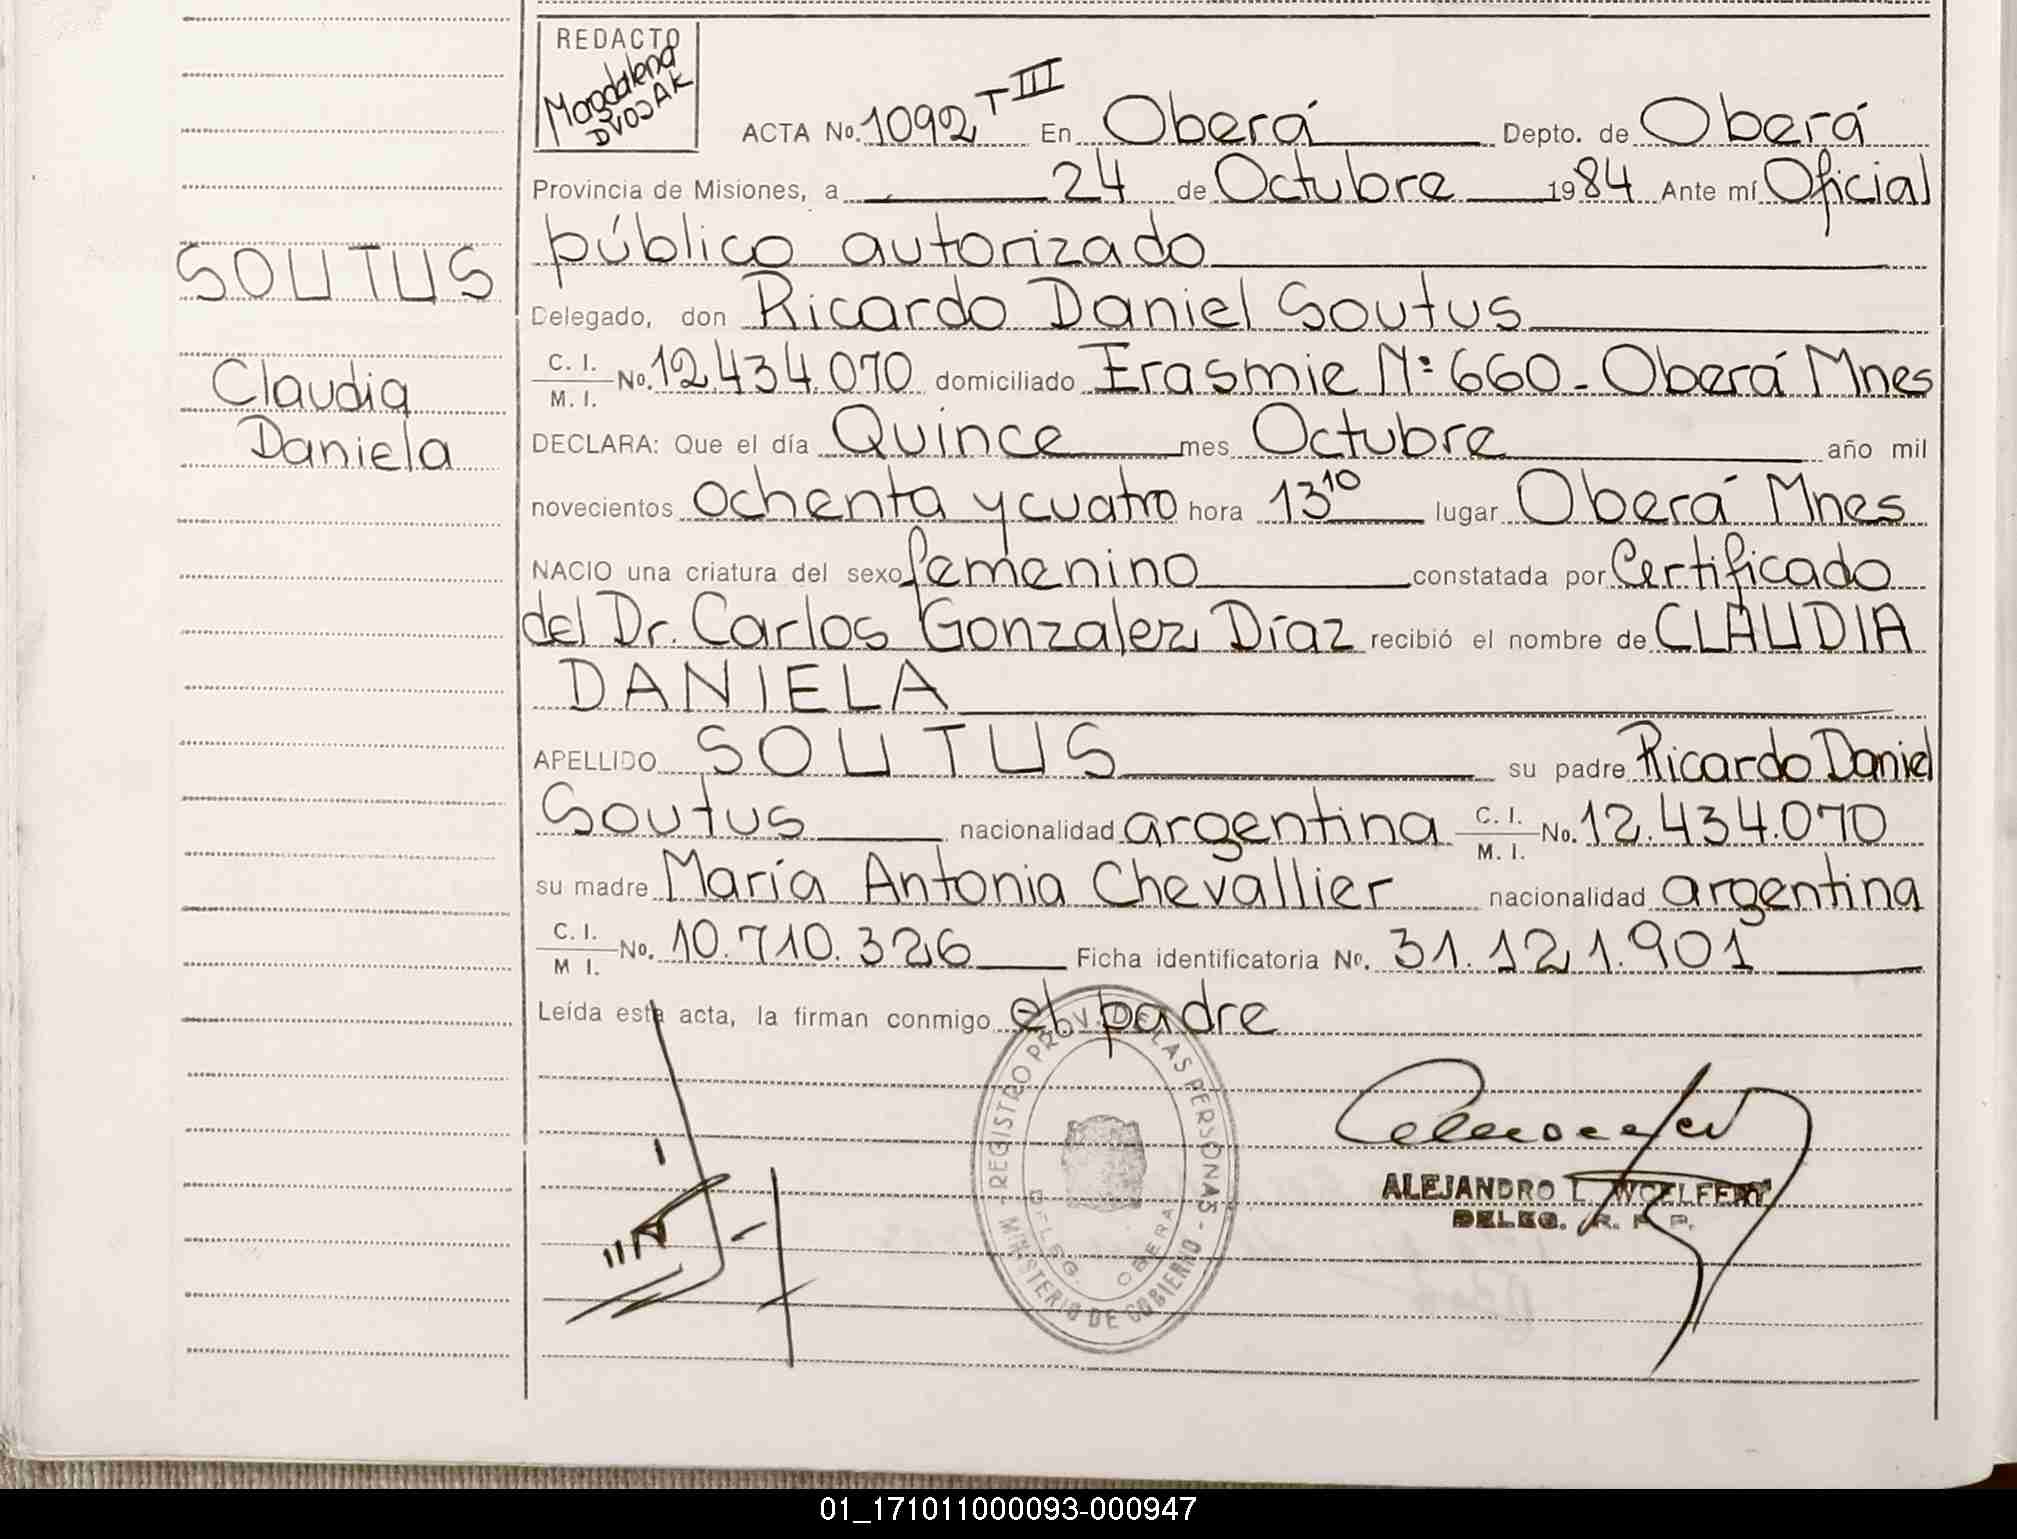 REDACTO
Magdalena
DVOJAK
ACTA No. 1092 T III En Oberá Depto. de Oberá
Provincia de Misiones, a 24 de Octubre 1984 Ante mí Oficial
público autorizado
SOUTUS
Delegado, don Ricardo Daniel Soutus
C. I. / M. I. No. 12.434.070 domiciliado Erasmie Nº 660 - Oberá Mnes
Claudia
DECLARA: Que el día Quince mes Octubre año mil
Daniela
novecientos ochenta y cuatro hora 13 10 lugar Oberá Mnes
NACIO una criatura del sexo femenino constatada por Certificado
del Dr. Carlos Gonzalez Díaz recibió el nombre de CLAUDIA
DANIELA
APELLIDO SOUTUS su padre Ricardo Daniel
Soutus nacionalidad argentina C. I. / M. I. No. 12.434.070
su madre María Antonia Chevallier nacionalidad argentina
C. I. / M I. No. 10.710.326 Ficha identificatoria No. 31.121.901
Leída esta acta, la firman conmigo el padre
REGISTRO PROV. DE LAS PERSONAS - MINISTERIO DE GOBIERNO -
DELEG. OBERA
ALEJANDRO L. WOELFERT
DELEG. R. P. P.
01_171011000093-000947